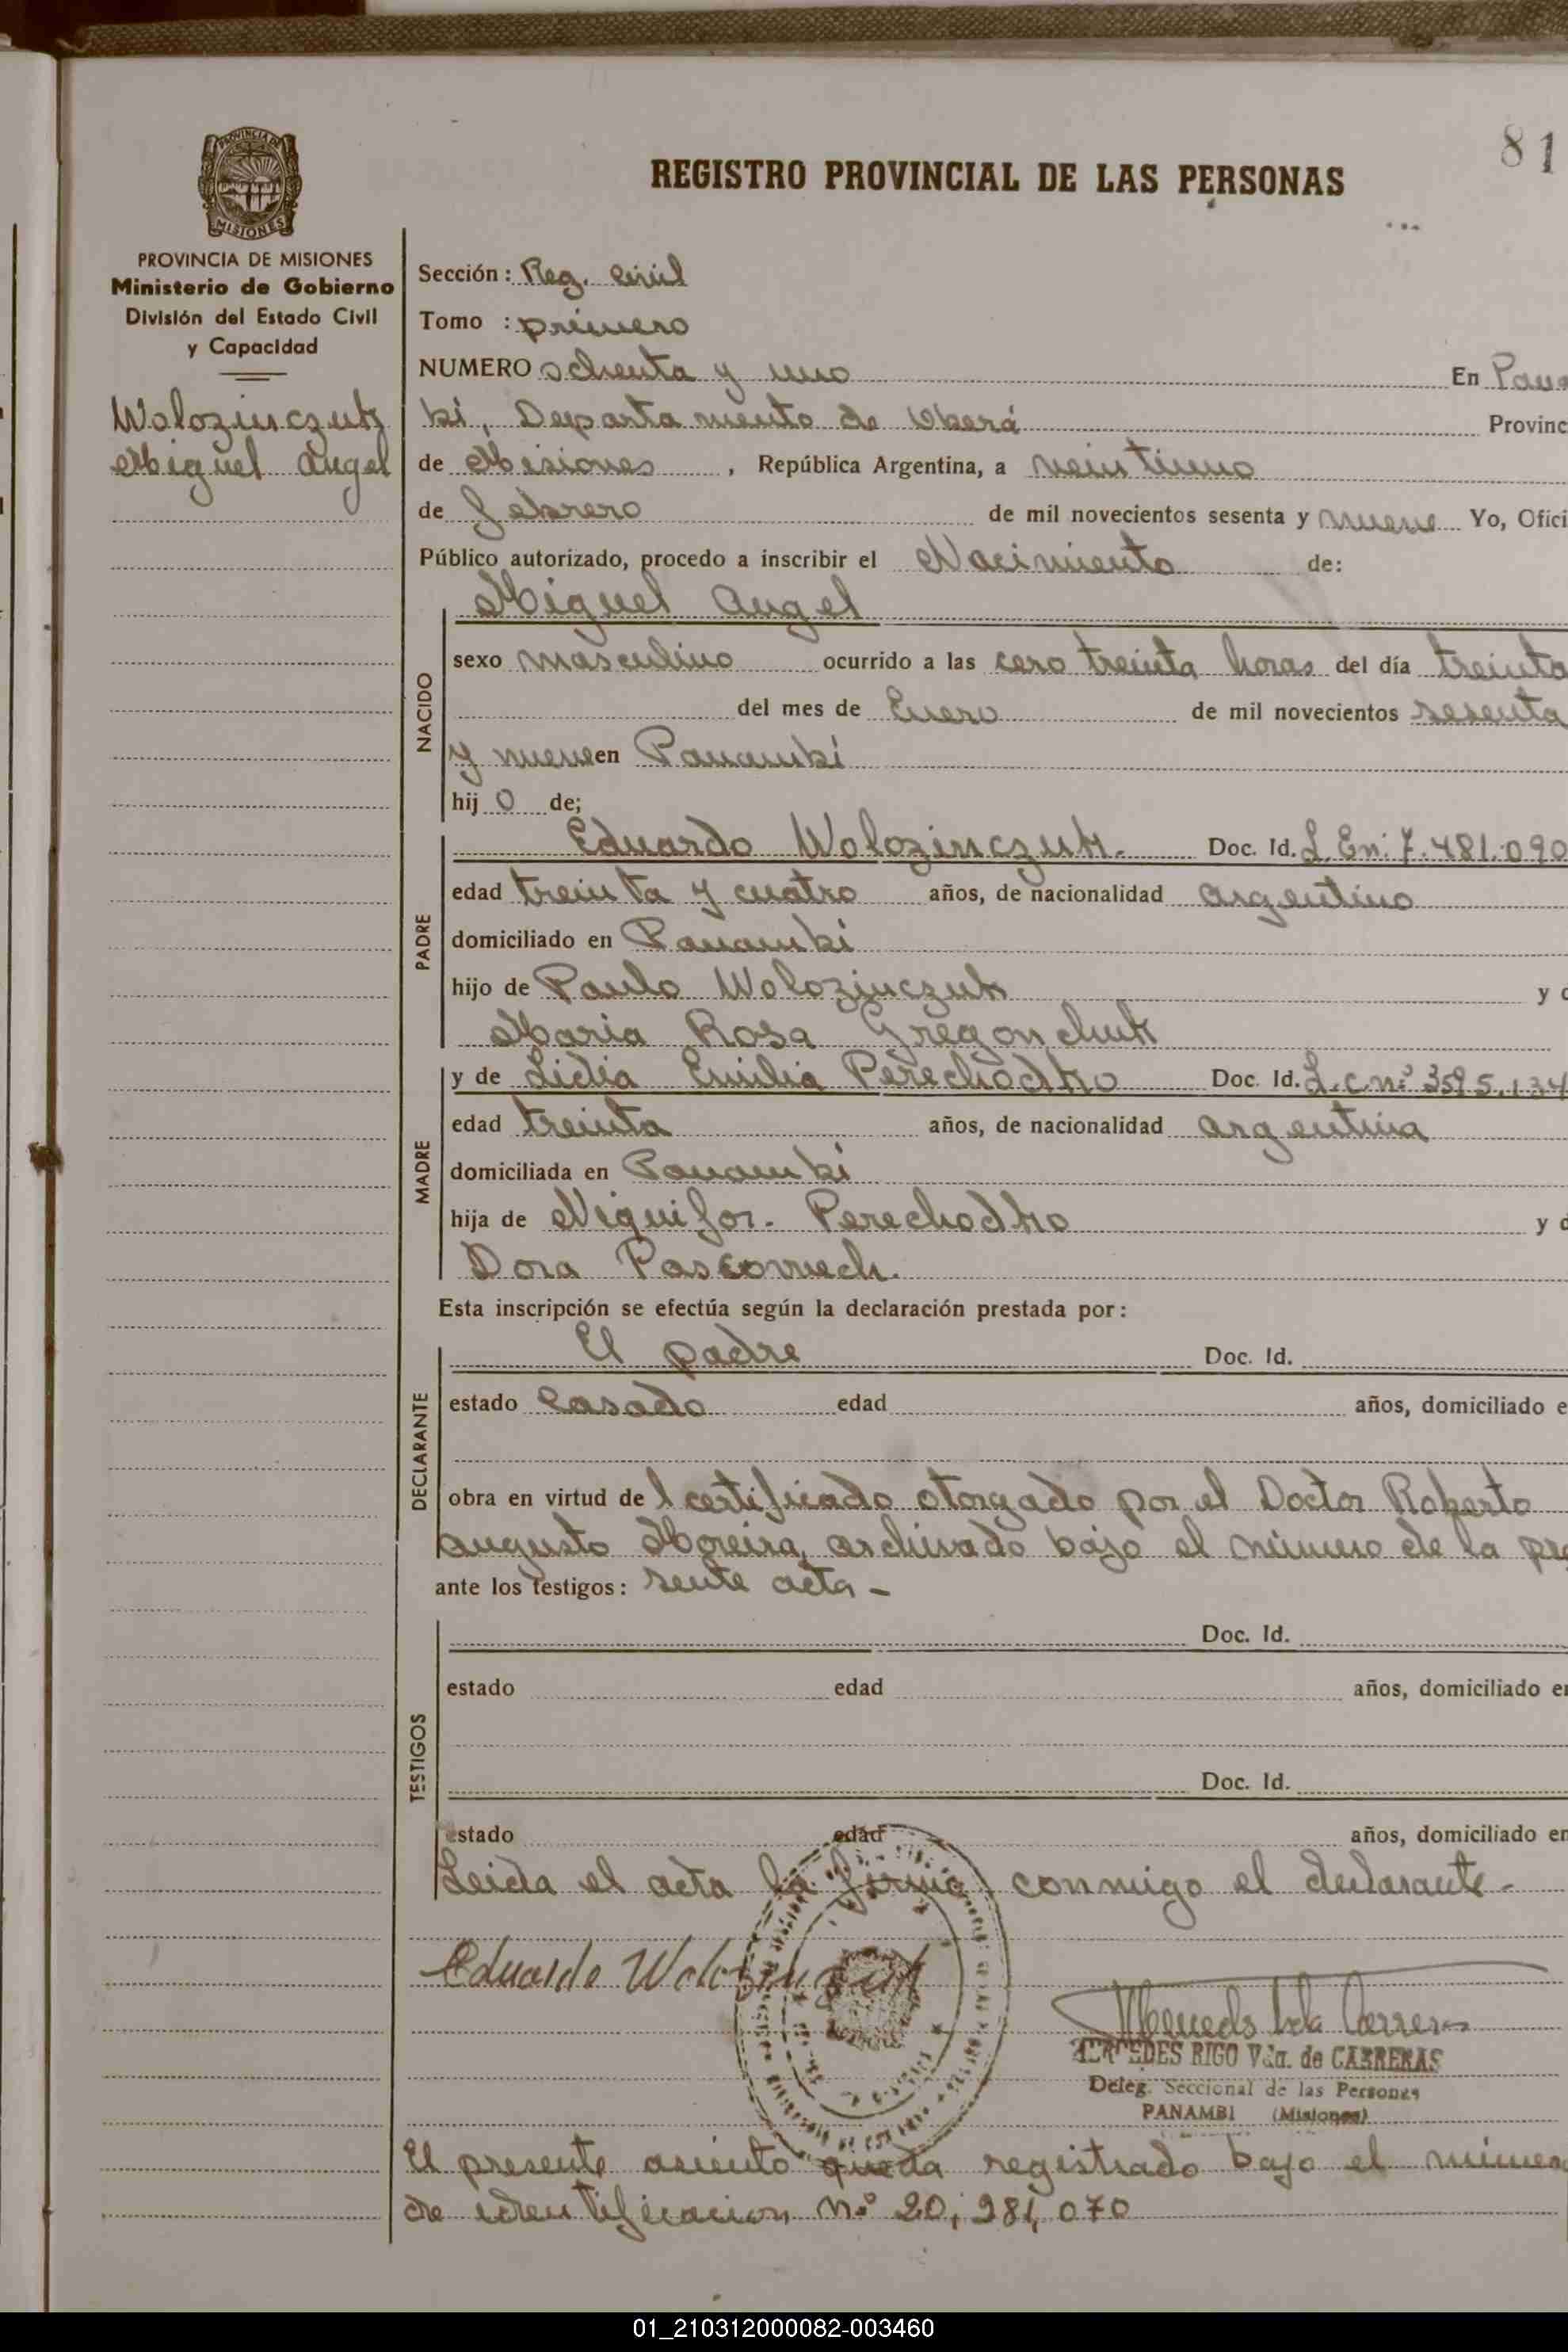 81
REGISTRO PROVINCIAL DE LAS PERSONAS
PROVINCIA DE MISIONES
Ministerio de Gobierno
División del Estado Civil
y Capacidad
Wolozinczuk
Miguel Angel
Sección: Reg. Civil
Tomo : primero
NUMERO ochenta y uno En Pana
bí, Departamento de Oberá Provinc
de Misiones, República Argentina, a veintiuno
de febrero de mil novecientos sesenta y nueve Yo, Ofici
Público autorizado, procedo a inscribir el Nacimiento de:
Miguel Angel
NACIDO
sexo masculino ocurrido a las cero treinta horas del día treinta
del mes de Enero de mil novecientos sesenta
y nueve en Panambí
hij o de;
PADRE
Eduardo Wolozinczuk. Doc. Id. L. En: 7.481.090
edad treinta y cuatro años, de nacionalidad argentino
domiciliado en Panambí
hijo de Paulo Wolozinczuk y d
Maria Rosa Gregonchuk
MADRE
y de Lidia Emilia Perechodko Doc. Id. L.C.nº 3595.134
edad treinta años, de nacionalidad argentina
domiciliada en Panambí
hija de Niquifor. Perechodko y d
Dora
Esta inscripción se efectúa según la declaración prestada por:
DECLARANTE
El padre Doc. Id.
estado Casado edad años, domiciliado e
obra en virtud de l certificado otorgado por el Doctor Roberto
Augusto Moreira, archivado bajo el número de la pre
ante los testigos: sente acta -
TESTIGOS
Doc. Id.
estado edad años, domiciliado en
Doc. Id.
estado edad años, domiciliado en
Leida el acta la firma conmigo el declarante -
Eduardo Wolozinczuk
MERCEDES RIGO Vda. de CARRERAS
Deleg. Seccional de las Personas
PANAMBI (Misiones)
El presente asiento queda registrado bajo el número
de identificacion nº 20,281,070
01_210312000082-003460